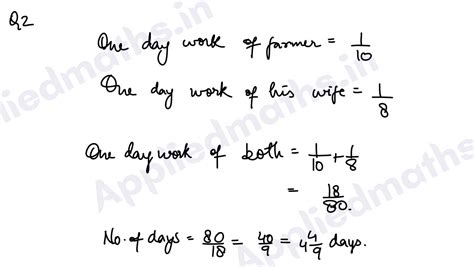 Q2
One day work of farmer = 1/10
One day work of his wife = 1/8
One day work of both = 1/10 + 1/8
= 18/80.
No. of days = 80/18 = 40/9 = 4 4/9 days.
Appliedmaths.in
Appliedmaths.in
Appliedmaths.in